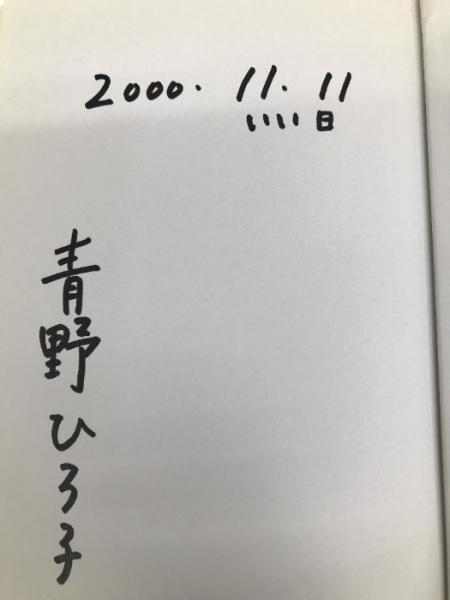 2000. 11. 11
いい日
青野ひろ子